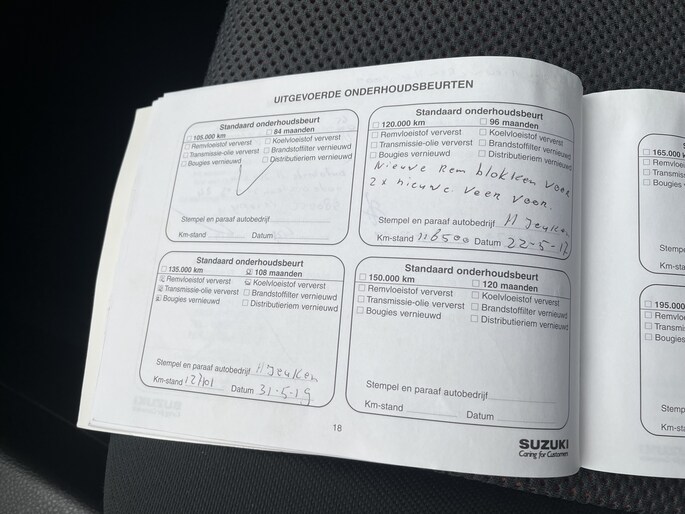 UITGEVOERDE ONDERHOUDSBEURTEN
Standaard onderhoudsbeurt
105.000 km 84 maanden
Remvloeistof ververst Koelvloeistof ververst
Transmissie-olie ververst Brandstoffilter vernieuwd
Bougies vernieuwd Distributieriem vernieuwd
Stempel en paraaf autobedrijf
Km-stand Datum
Standaard onderhoudsbeurt
120.000 km 96 maanden
Remvloeistof ververst Koelvloeistof ververst
Transmissie-olie ververst Brandstoffilter vernieuwd
Bougies vernieuwd Distributieriem vernieuwd
Nieuwe Rem blokken voor
2x nieuwe veer voor.
Stempel en paraaf autobedrijf H Jeuken
Km-stand 116500 Datum 22-5-17
Standaard onderhoudsbeurt
135.000 km 108 maanden
Remvloeistof ververst Koelvloeistof ververst
Transmissie-olie ververst Brandstoffilter vernieuwd
Bougies vernieuwd Distributieriem vernieuwd
Stempel en paraaf autobedrijf H Jeuken
Km-stand 127101 Datum 31-5-19
Standaard onderhoudsbeurt
150.000 km 120 maanden
Remvloeistof ververst Koelvloeistof ververst
Transmissie-olie ververst Brandstoffilter vernieuwd
Bougies vernieuwd Distributieriem vernieuwd
Stempel en paraaf autobedrijf
Km-stand Datum
18
SUZUKI
Caring for Customers
165.000
Remvloei
Transmis
Bougies
Stemp
Km-st
195.000
Remvlo
Transmi
Bougies
Stem
Km-sta